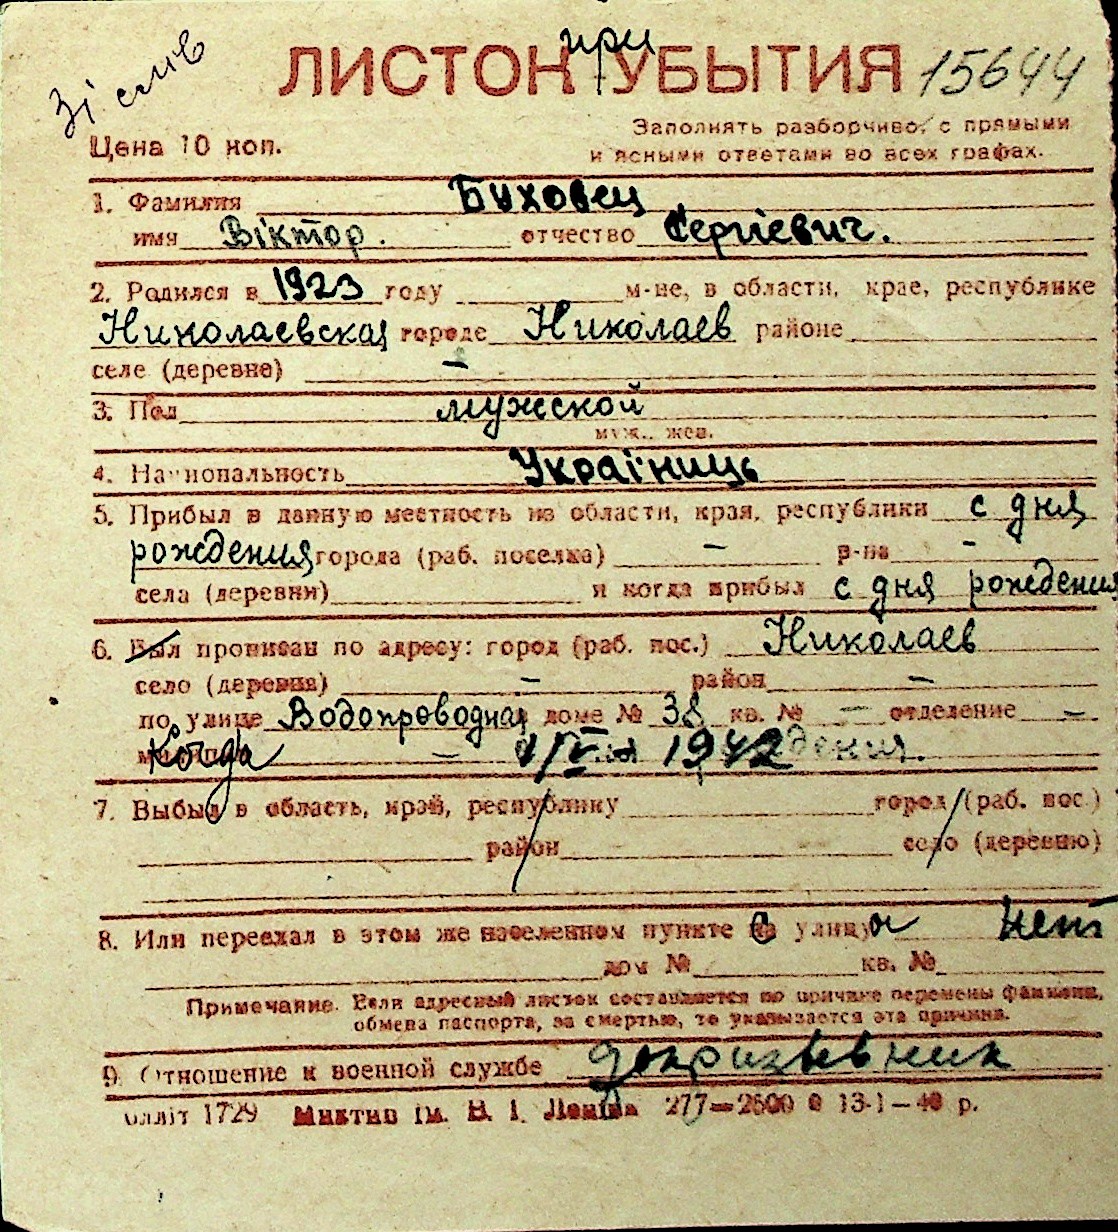 Зі слів
при
ЛИСТОК УБЫТИЯ 15644
Цена 10 коп.
Заполнять разборчиво, с прямыми
и ясными ответами во всех графах.
1. Фамилия Буховец
имя Віктор. отчество Сергіевич.
2. Родился в 1923 году м-це, в области, крае, республике
Николаевская городе Николаев районе
селе (деревне) –
3. Пол мужской
муж., жен.
4. Национальность Українць
5. Прибыл в данную местность из области, края, республики с дня
рождения города (раб. поселка) – р-на –
села (деревни) и когда прибыл с дня рождения
6. Был прописан по адресу: город (раб. пос.) Николаев
село (деревня) – район –
по улице Водопроводная доме № 38 кв. № – отделение –
Когда – 1/V 1942
7. Выбыл в область, край, республику город (раб. пос.)
район село (деревню)
8. Или переехал в этом же населенном пункте с улицы нет
дом № кв. №
Примечание. Если адресный листок составляется по причине перемены фамилии,
обмена паспорта, за смертью, то указывается эта причина.
9. Отношение к военной службе допризывник
облліт 1729 Миктип ім. В. І. Леніна 277—2600 0 13-1—40 р.